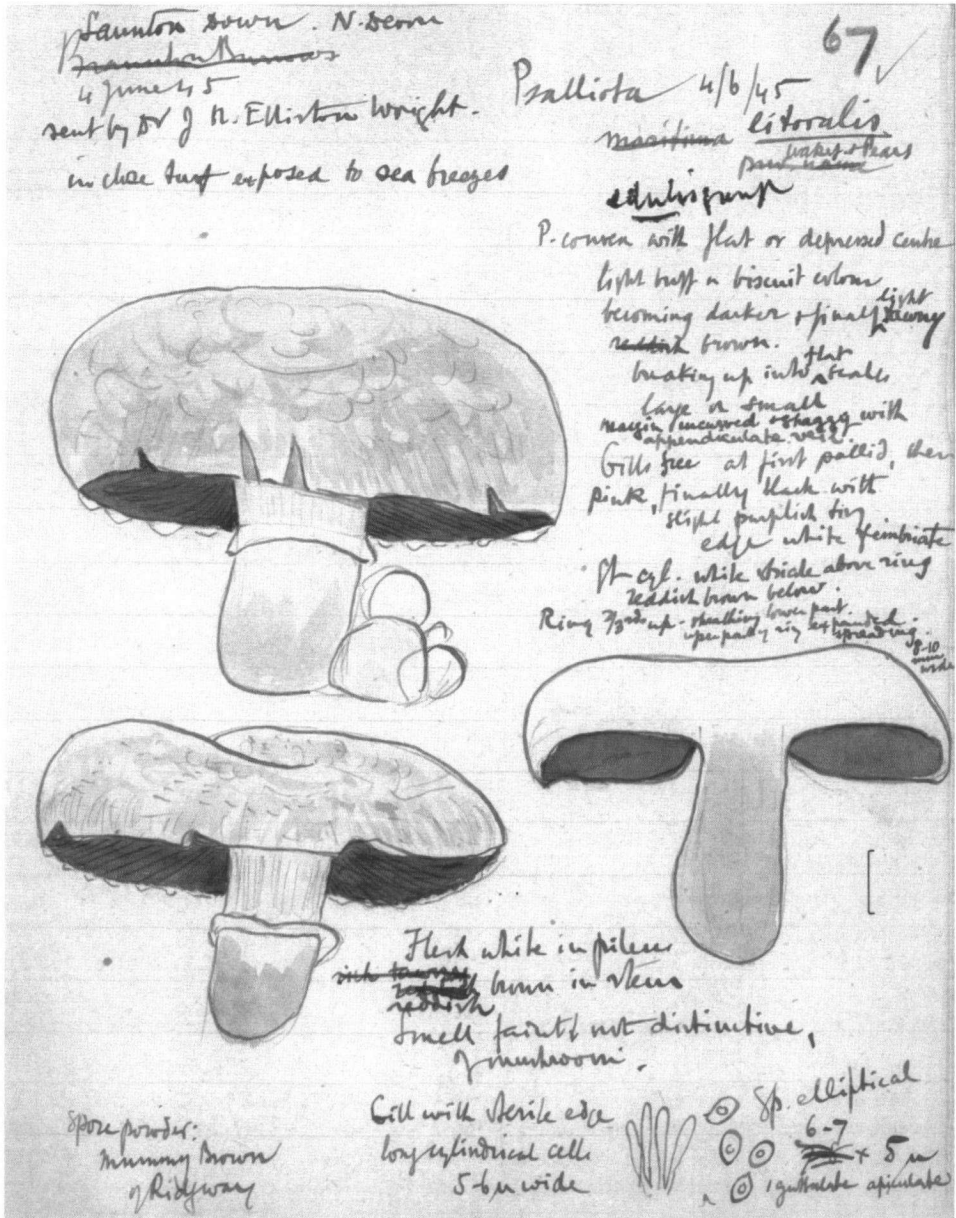 Saunton Down. N. Devon
Braunton Burrows
4 June 45
sent by Dr J N. Elliston Wright.
in close turf exposed to sea breezes
67
Psalliota 4/6/45
maritima litoralis
Wakef. & Pears
edulis group
P. convex with flat or depressed centre
light buff or biscuit colour
becoming darker & finally light tawny
reddish brown.
breaking up into flat scales
large or small
margin incurved & shaggy with
appendiculate veil
Gills free at first pallid, then
pink, finally black with
slight purplish ting
edge white fimbriate
St cyl. white striate above ring
reddish brown below.
Ring 2/3rds up. sheathing lower part.
upper part of ring expanded.
spreading.
8-10
mm
wide
Flesh white in pileus
rich tawny
reddish brown in stem
reddish
Smell faint & not distinctive,
of mushroom.
Spore powder:
Mummy Brown
of Ridgway
Gill with sterile edge
long cylindrical cells
5-6µ wide
Sp. elliptical
6-7 × 5µ
1 guttulate apiculate